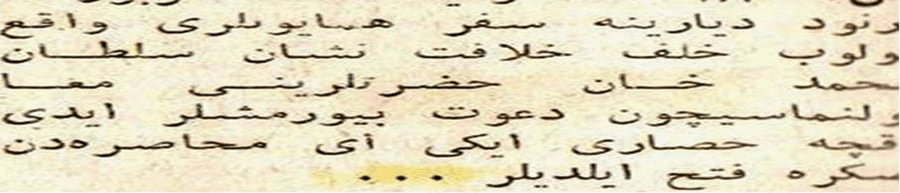 رنود ديارينه سفر همايونلرى واقع
ولوب خلف خلافت نشان سلطان
محمد خان حضرتلرينى معا
ولنماسيچون دعوت بيورمشلر ايدى
قچه حصارى ايكى آى محاصره‌دن
سكره فتح ايلديلر ...